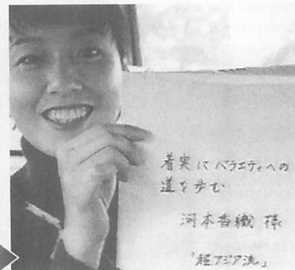 着実にバラエティへの
道を歩む
河本香織 様
「超アジア流」